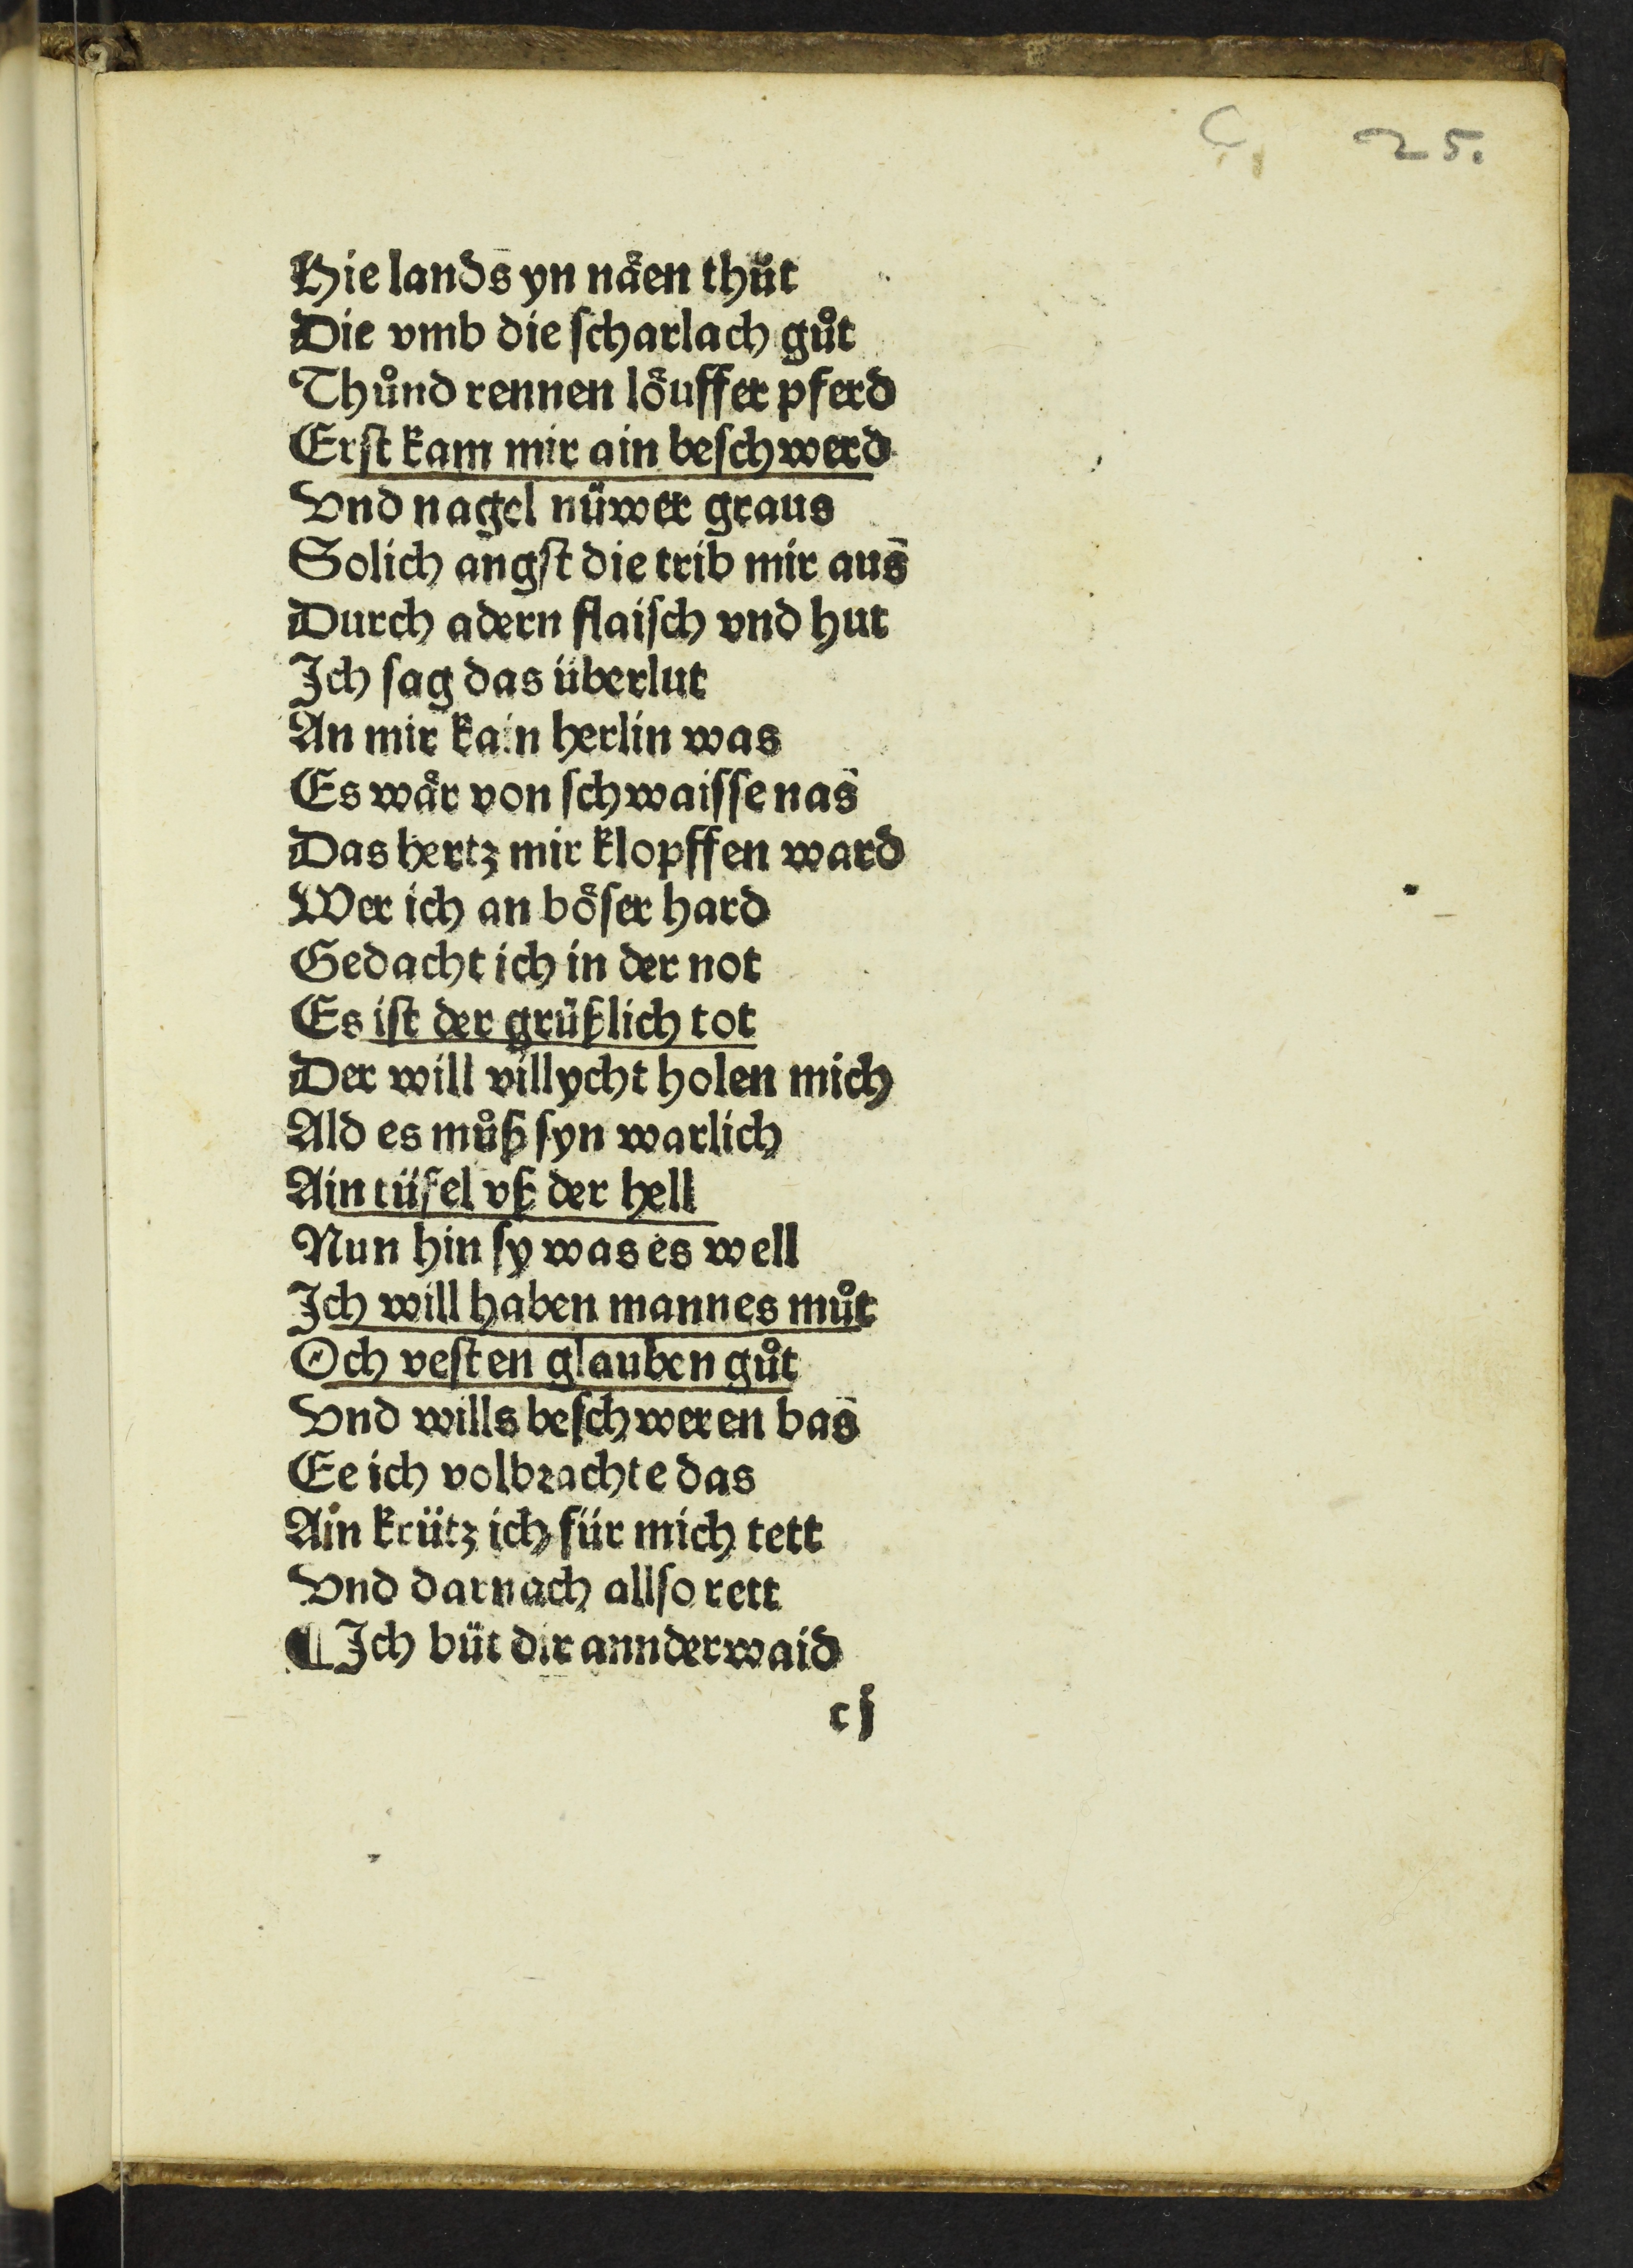 C 25.
Hie lands̄ yn nåen thůt
Die vmb die ſcharlach gůt
Thůnd rennen lo̊uffer pferd
Erſt kam mir ain beſchwerd
Vnd nagel nüwer graus
Solich angſt die trib mir aus̄
Durch adern flaiſch vnd hut
Ich ſag das überlut
An mir kain herlin was
Es wår von ſchwaiſſe nas̄
Das hertz mir klopffen ward
Wer ich an bo̊ſer hard
Gedacht ich in der not
Es iſt der grüßlich tot
Der will villycht holen mich
Ald es můß ſyn warlich
Ain tüfel vß der hell
Nun hin ſy was es well
Ich will haben mannes můt
Och veſten glauben gůt
Vnd wills beſchweren bas̄
Ee ich volbꝛachte das
Ain krütz ich für mich tett
Vnd darnach allſo rett
¶ Ich büt dir annderwaid
cj